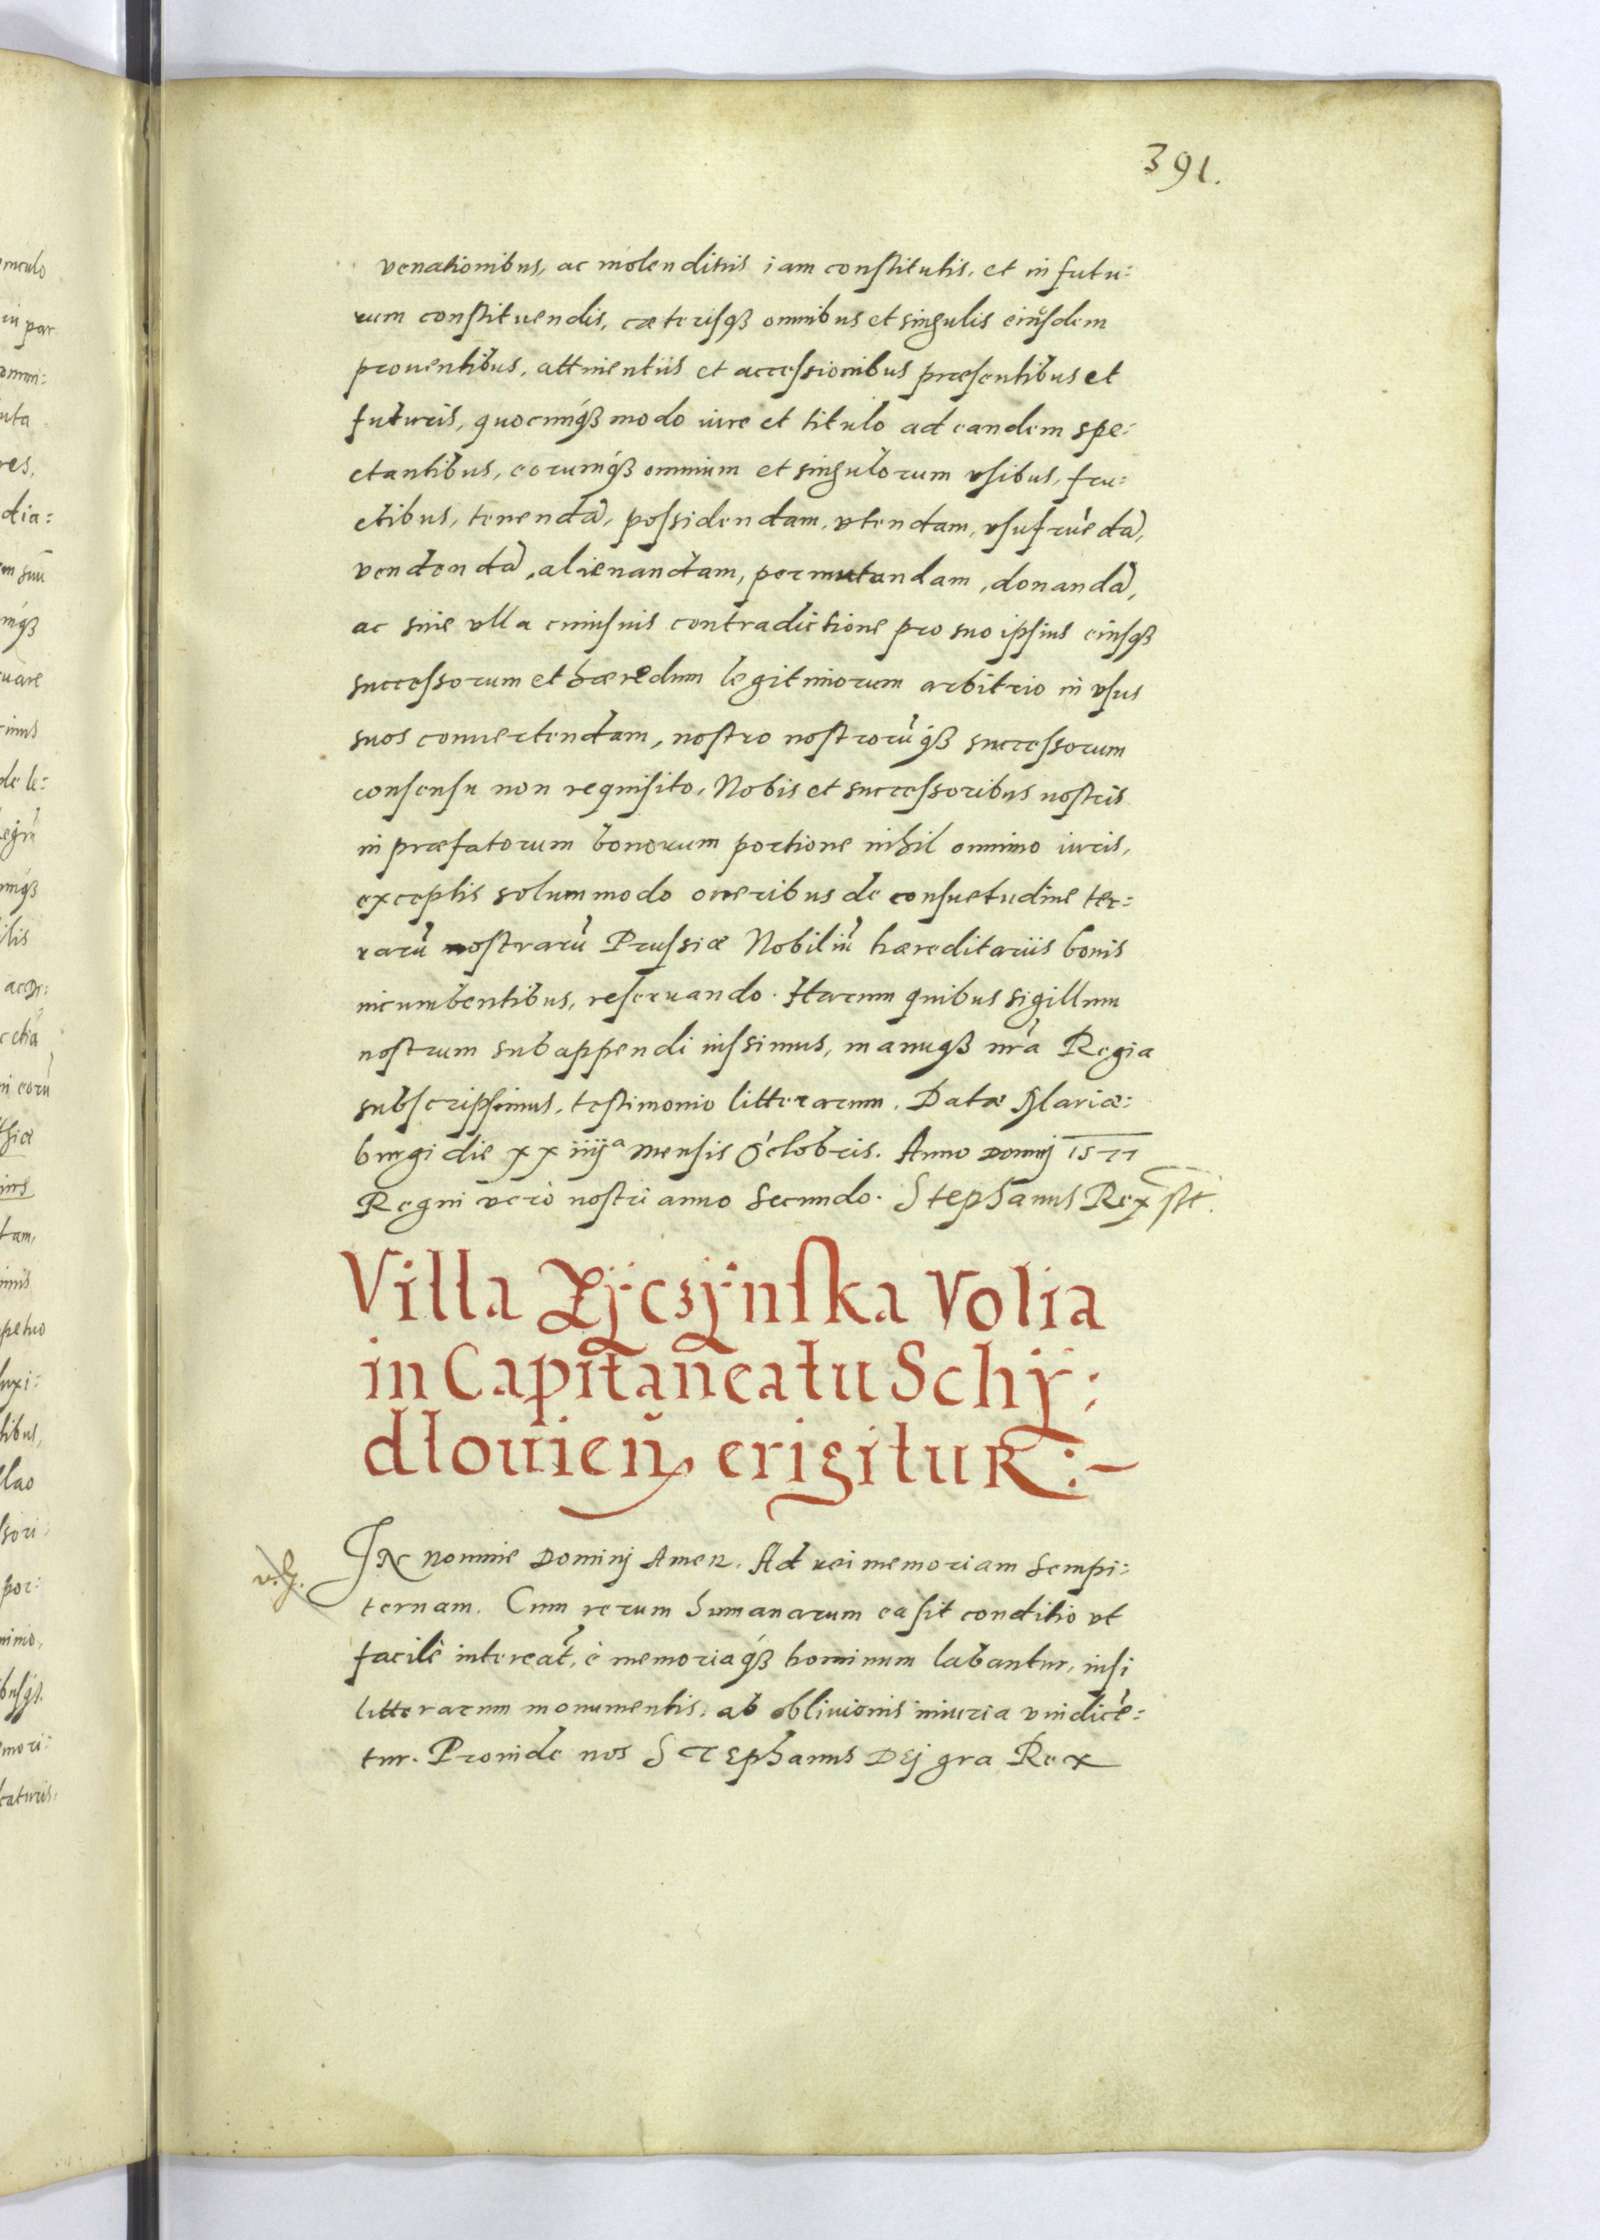 391.
venationibus, ac molenditiis iam constitutis, et in futu:
rum constituendis, cæterisq3 omnibus et singulis eiusdem
prouentibus, attinentiis et accessionibus præsentibus et
futuris, quocunq3 modo iure et titulo ad eandem spe:
ctantibus, eorumq3 omnium et singulorum vsibus, fru:
ctibus, tenendã, possidendam, vtendam, vsufruẽdã,
vendendã, alienandam, permutandam, donandã,
ac sine vlla cuiusuis contradictione pro suo ipsius eiusq3
successorum et hæredum legitimorum arbitrio in vsus
suos conuertendam, nostro nostrorũq3 successorum
consensu non requisito, Nobis et successoribus nostris
in præfatorum bonorum portione nihil omnino iuris,
exceptis solummodo oneribus de consuetudine ter:
rarũ nostrarũ Prussiæ Nobiliũ hæreditariis bonis
incumbentibus, reseruando. Harum quibus sigillum
nostrum subappendi iussimus, manuq3 nrã Regia
subscripsimus, testimonio litterarum. Datæ Mariæ:
burgi die xxiiijª mensis Octobris. Anno Dominj 1577
Regni vero nostri anno Secundo. Stephanus Rex sst.
Villa Zÿczÿnska Volia
in Capitaneatu Schÿ:
dlouien̄ erigitur:-
v.g.
In nomine Dominj Amen. Ad rei memoriam sempi:
ternam. Cum rerum humanarum ea sit conditio vt
facilè intereãt, è memoriaq3 hominum labantur, nisi
litterarum monumentis, ab obliuionis iniuria vindicẽ:
tur. Proinde nos Stephanus Dej gra Rex